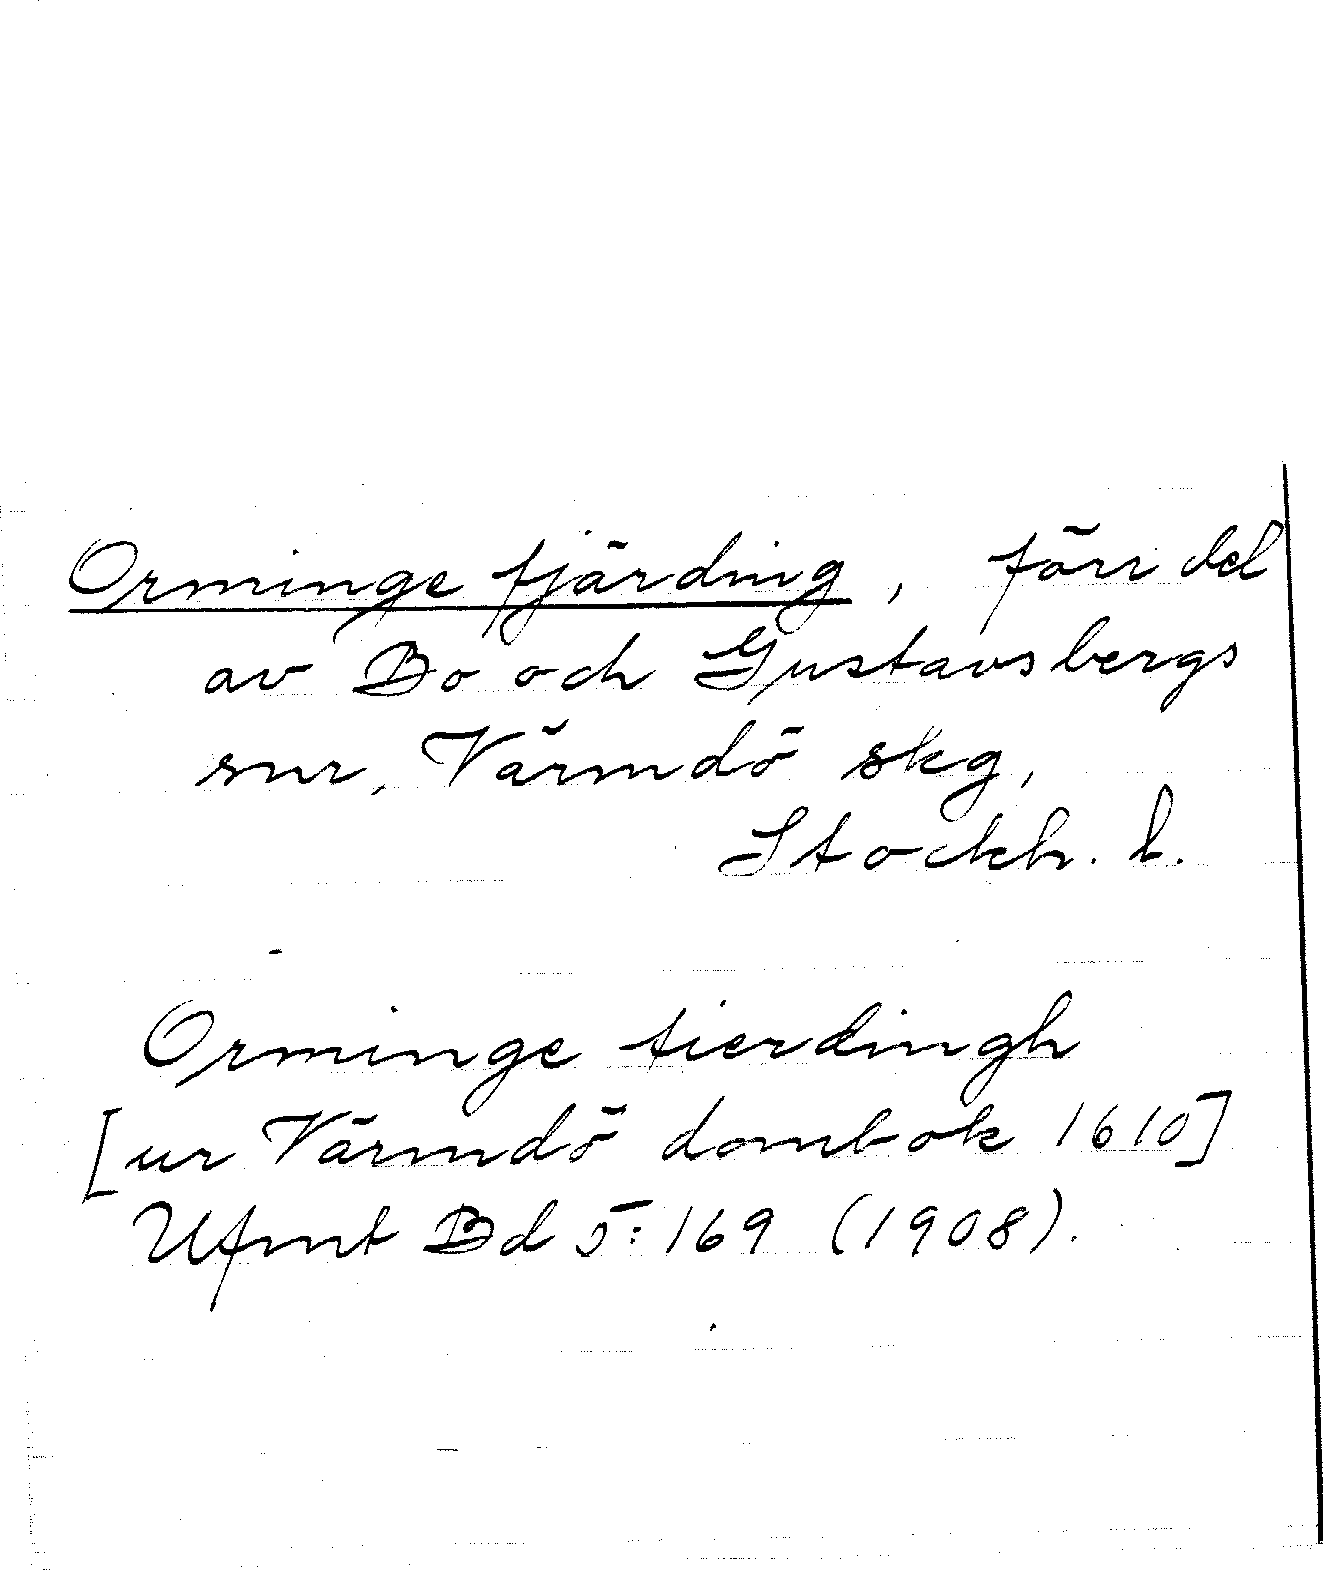 Orminge fjärding, förr del
av Bo och Gustavsbergs
snr, Värmdö skg,
Stockh. l.
Orminge fierdingh
[ur Värmdö dombok 1610]
Ufmt Bd 5:169 (1908).